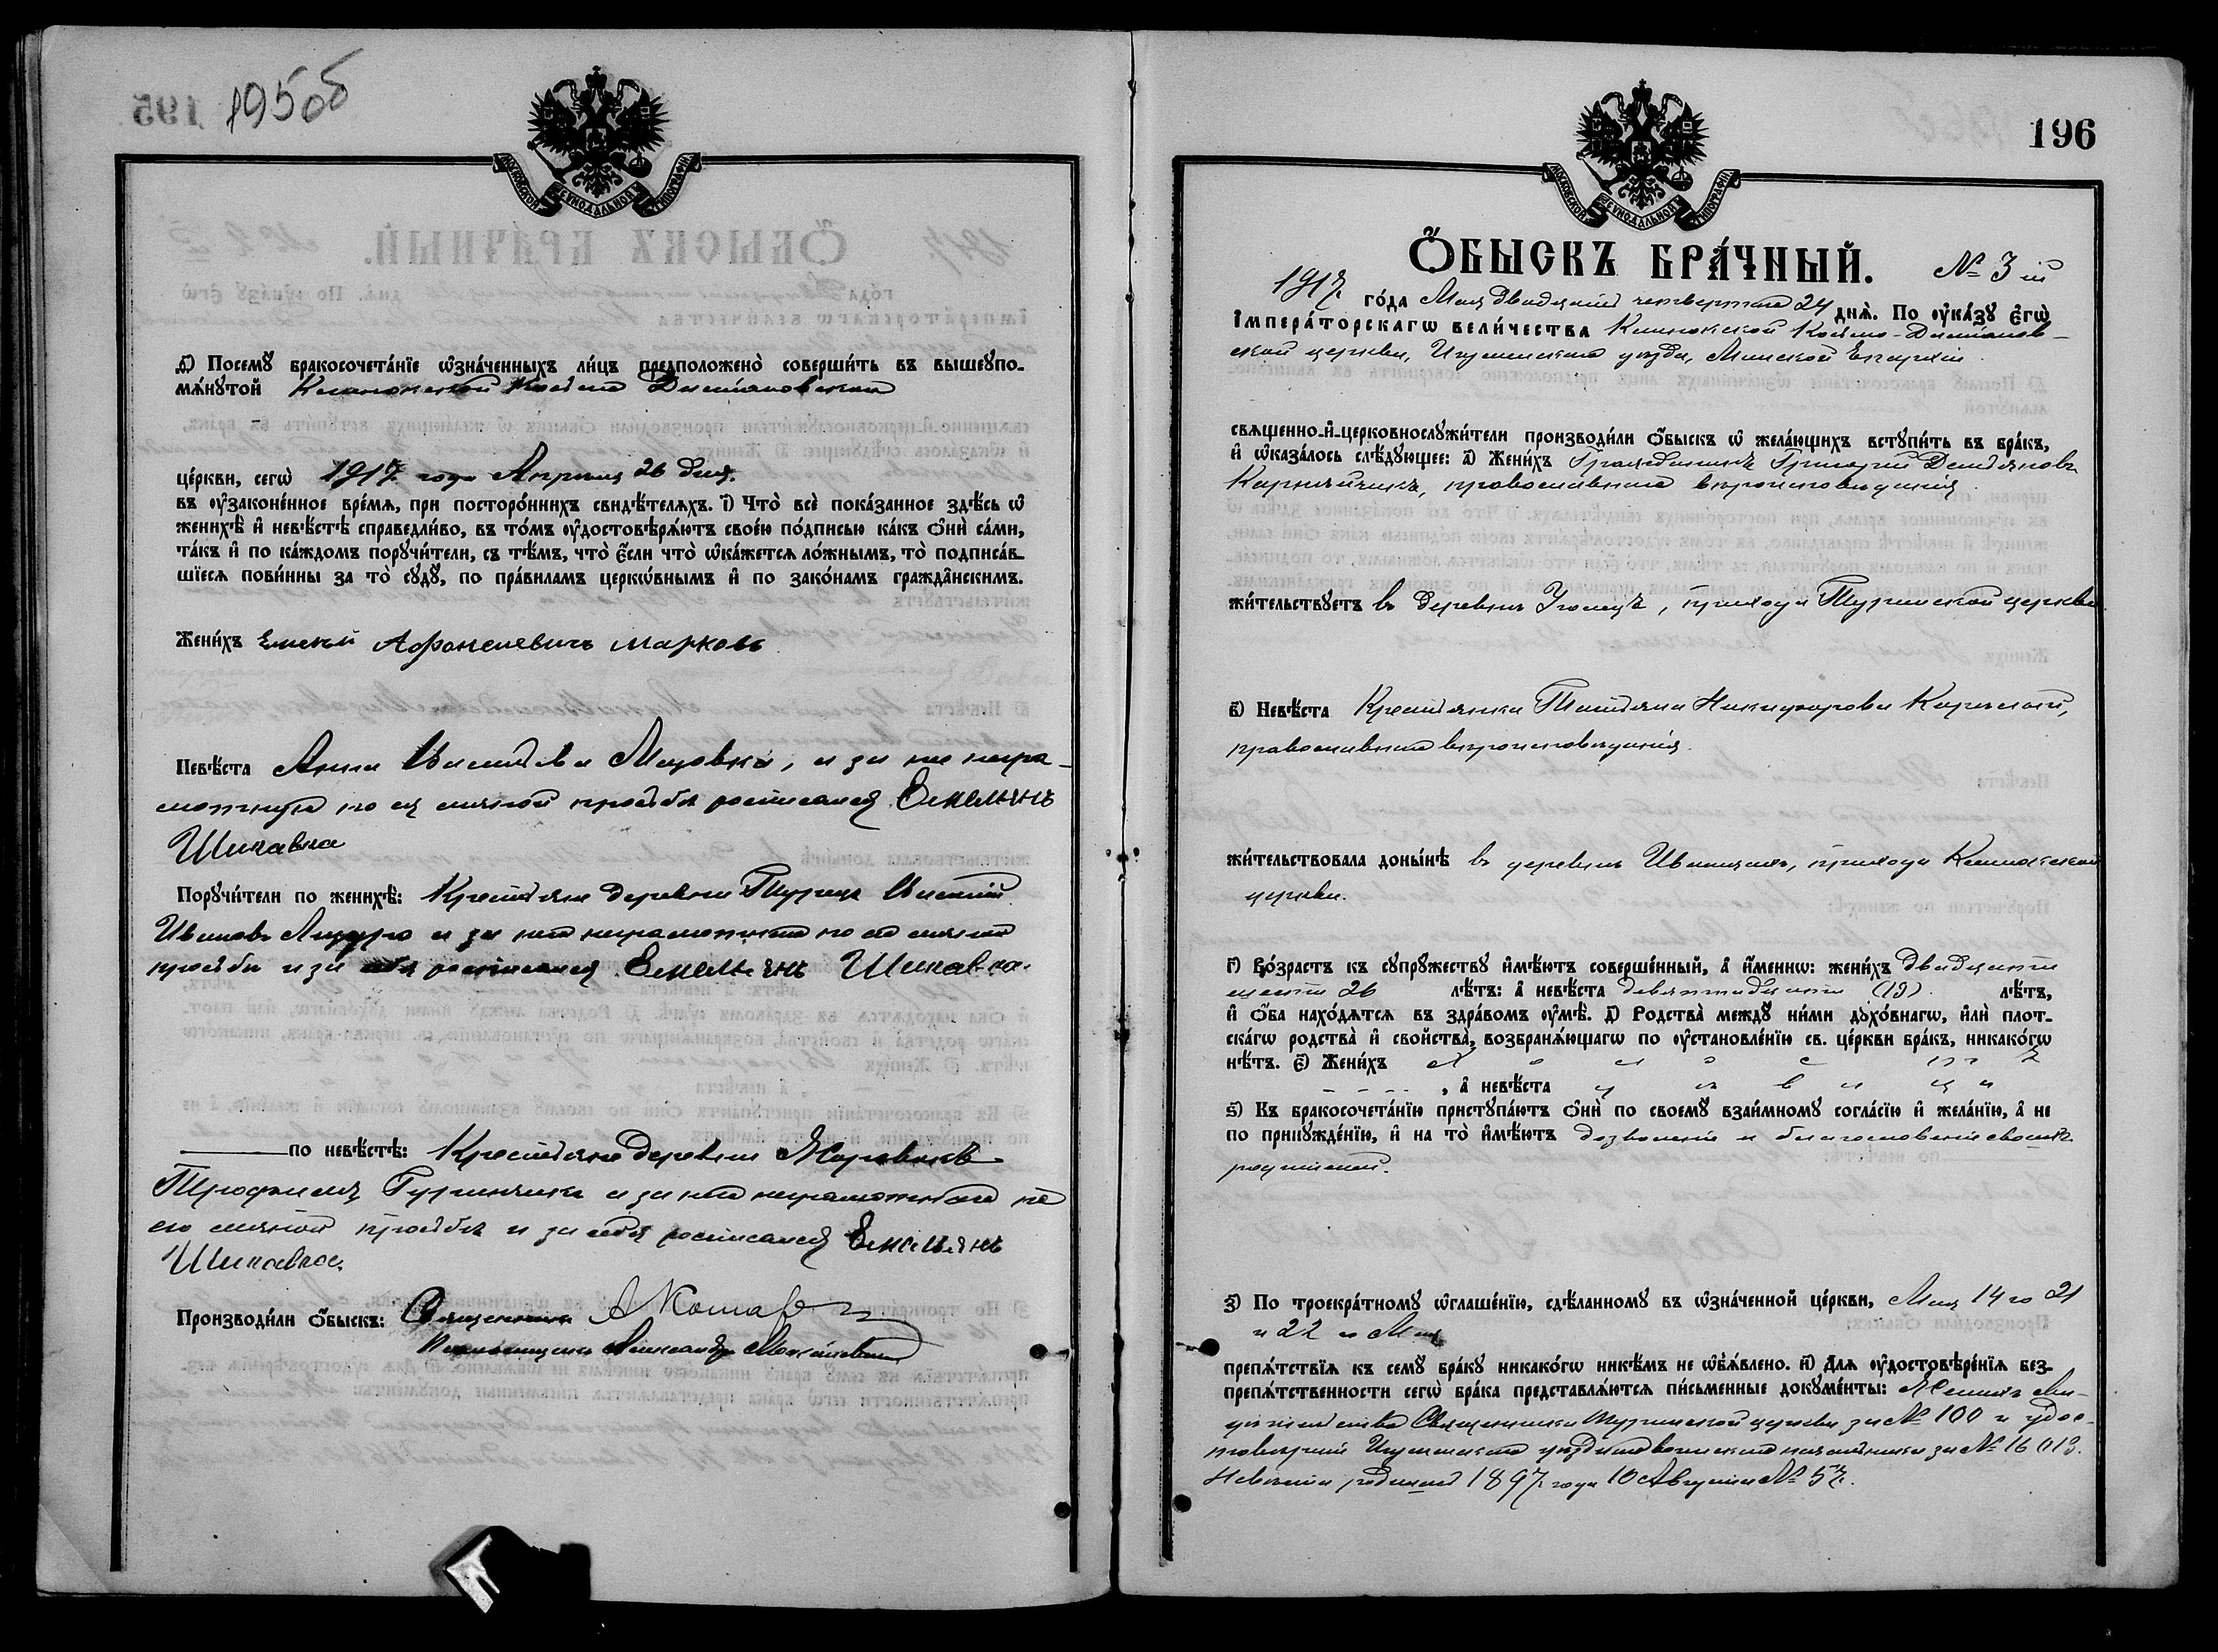 195об
МОСКОВСКОЙ СѴНОДАЛЬНОЙ ТИПОГРАФІИ
д҃і) Посемꙋ̀ бракосочета́нїе ѡ҆зна́ченныхъ ли́цъ предположено̀ соверши́ть въ вышеꙋпо-
мѧ́нꙋтой Космо Даміановской
це́ркви, сегѡ̀ 1917 года Апреля 26 дня.
въ ᲂу҆зако́ненное вре́мѧ, при посторо́ннихъ свидѣ́телѧхъ. і҃) Что̀ всѐ пока́занное здѣ́сь ѡ҆
женихѣ̀ и҆ невѣ́стѣ справедли́во, въ то́мъ ᲂу҆достовѣрѧ́ютъ свое́ю по́дписью ка́къ ѻ҆нѝ са́ми,
та́къ и҆ по ка́ждомъ порꙋчи́тели, съ тѣ́мъ, что̀ є҆́сли что̀ ѡ҆ка́жетсѧ ло́жнымъ, то̀ подписа́в-
шїесѧ пови́нны за то̀ сꙋдꙋ̀, по пра́виламъ церкѡ́внымъ и҆ по зако́намъ гражда̑нскимъ.
Жени́хъ Афонасиевичъ Марковъ
Невѣ́ста Анна Мацовка, и за не негра-
мотную по ея личной просьбе росписался Емельянъ
Шикавка
Порꙋчи́тели по женихѣ̀: Крестьяне деревни Турца
Ивановъ и за него неграмотнаго по его личной
просьбе и за себя росписался Емельянъ Шикавка.
по невѣ́стѣ: Крестьяне деревни
Трофимъ Гуринчикъ и за него неграмотнаго по
его личной просьбе и за себя росписался Емельянъ
Шикавка.
Производи́ли ѻ҆́быскъ: Священникъ
Псаломщикъ Александръ
196
МОСКОВСКОЙ СѴНОДАЛЬНОЙ ТИПОГРАФІИ
Ѻ҆́БЫСКЪ БРА́ЧНЫЙ. № 3 ій
1917 го́да Мая двадцать четвертаго 24 днѧ̀. По ᲂу҆ка́зꙋ Є҆гѡ̀
І҆мпера́торскагѡ вели́чества Космо-Даміанов-
ской церкви, Игуменскаго уезда, Минской Епархіи.
свѧщенно-и҆-церковнослꙋжи́тели производи́ли ѻ҆́быскъ ѡ҆ жела́ющихъ встꙋпи́ть въ бра́къ,
и҆ ѡ҆каза́лось слѣ́дꙋющее: а҃) Жени́хъ Гражданинъ Григорій Демьяновъ
православнаго вероисповеданія.
жи́тельствꙋетъ въ деревне Уголецъ, прихода Туринской церкви
в҃) Невѣ́ста Крестьянка Татьяна Никифорова
православнаго вероисповеданія.
жи́тельствовала донынѣ въ деревне Иваничахъ, прихода
церкви.
г҃) Во́зрастъ къ сꙋпрꙋжествꙋ̀ и҆мѣ́ютъ соверше́нный, а҆ и҆́меннѡ: жени́хъ двадцати
шести 26 лѣ́тъ: а҆ невѣ́ста девятнадцати (19) лѣ́тъ,
и҆ ѻ҆́ба нахо́дѧтсѧ въ здра́вомъ ᲂу҆мѣ̀. д҃) Родства̀ междꙋ̀ ни́ми дꙋхо́внагѡ, и҆лѝ плот-
ска́гѡ родства̀ и҆ свойства̀, возбранѧ́ющагѡ по ᲂу҆становле́нїю св. це́ркви бра́къ, никако́гѡ
нѣ́тъ. є҃) Жени́хъ холостъ
, а҆ невѣ́ста девица
ѕ҃) Къ бракосочета́нїю пристꙋпа́ютъ ѻ҆нѝ по своемꙋ̀ взаи́мномꙋ согла́сїю и҆ жела́нїю, а҆ не
по принꙋжде́нїю, и҆ на то̀ и҆мѣ́ютъ дозволеніе и благословеніе своихъ
родителей.
з҃) По троекра́тномꙋ ѡ҆глаше́нїю, сдѣ́ланномꙋ въ ѡ҆зна́ченной це́ркви, Мая 14 го 21
и 22 го Мая
препѧ́тствїѧ къ семꙋ̀ бра́кꙋ никако́гѡ никѣ́мъ не ѡ҆б̾ѧ́влено. и҃) Длѧ ᲂу҆достовѣре́нїѧ без-
препѧ́тственности сегѡ̀ бра́ка представлѧ́ютсѧ пи́сьменные докꙋме́нты: Жениха сви-
детельство Священника Туринской церкви за № 100 и удос-
товереніе Игуменскаго уезднаго воинскаго начальника за № 16013.
Невеста родилась 1897 года 10 Августа № 57.